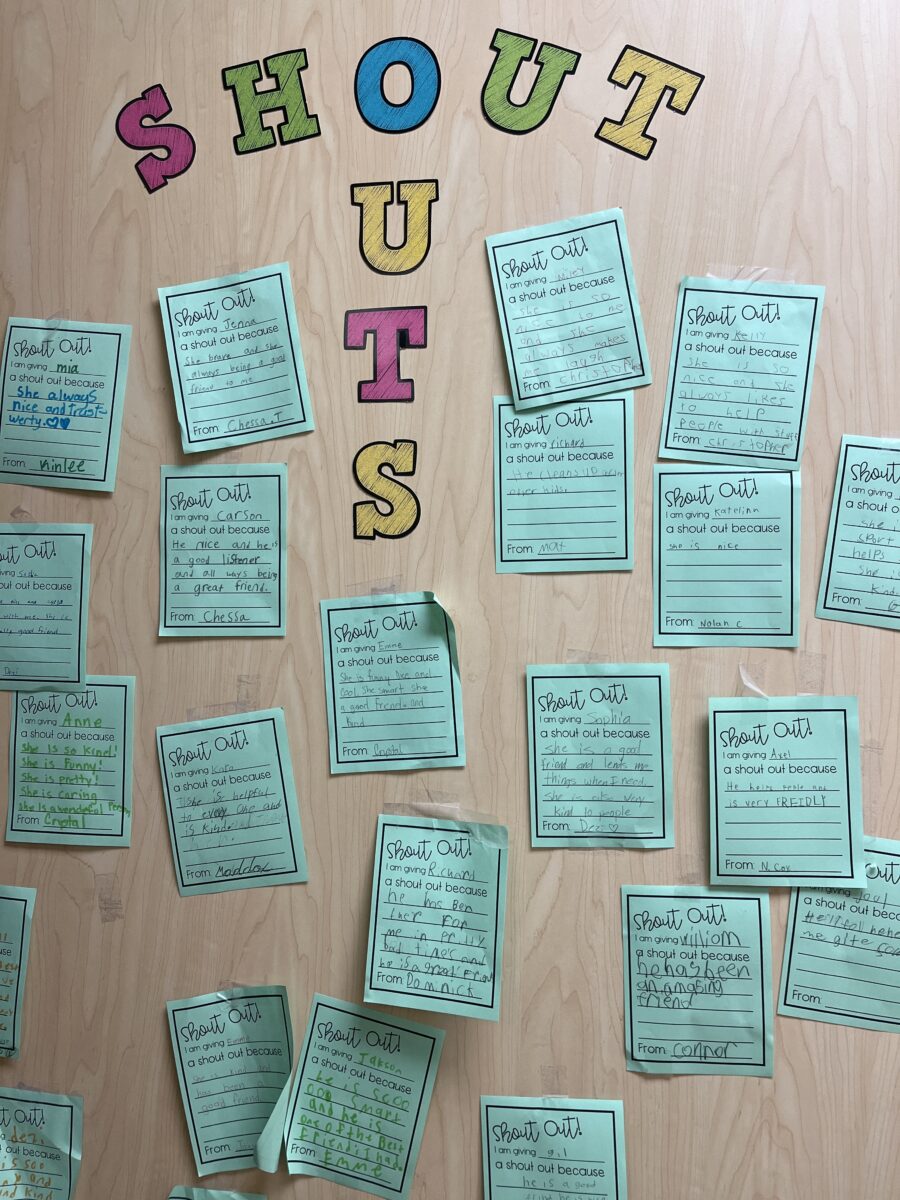 SHOUT
OUTS
Shout Out!
I am giving mia
a shout out because
She always
nice and trast
werty.
From: Kinlee
Shout Out!
I am giving Jenna
a shout out because
She brave and she
always being a good
friend to me
From: Chessa.T
Shout Out!
I am giving Miley
a shout out because
she is so
nice to me
and she
always makes
me laugh
From: christopher
Shout Out!
I am giving Kelly
a shout out because
She is so
nice and she
always likes
to help
people with stuff
From: christopher
Shout Out!
I am giving richard
a shout out because
He cleans up
other kids.
From: Mat
Shout Out!
I am giving Katelinn
a shout out because
she is nice
From: Nolan C
Shout
I am giving
a shout
she i
sport
helps
She i
kind
From: G
Shout Out!
I am giving Carson
a shout out because
He nice and he is
a good listener
and all ways being
a great friend.
From: Chessa
out Out!
giving
out out because
with me. She is
good friend
Dezi
Shout Out!
I am giving Emme
a shout out because
She is funny nice and
cool She smart she
a good trend and
kind
From: Crystal
Shout Out!
I am giving Anne
a shout out because
She is so kind!
She is Funny!
She is pretty!
She is caring
She is a wondeful Person
From: Crystal
Shout Out!
I am giving Kara
a shout out because
She is helpful
to every one and
is kind
From: Maddox
Shout Out!
I am giving Sophia
a shout out because
She is a good
friend and lends me
things when I need.
She is also very
kind to people
From: Dezi
Shout Out!
I am giving Axel
a shout out because
He helps peple and
is very FREIDLY
From: N. Cox
Shout Out!
I am giving Richard
a shout out because
he has Ben
ther For
me in Pritty
bad times and
he is a great Friend
From: Dominick
Shout Out!
I am giving William
a shout out because
he has been
an amasing
friend
From: Connor
I am giving
a shout out beca
me
From:
Shout Out!
I am giving Emme
a shout out because
She is kind and
has been
good friend
From:
Shout Out!
I am giving Jakson
a shout out because
he is sooo
ooo smart
and he is
one of the Best
Friends I had
From: Emme
out Out!
dezi
out because
is soo
and
nd kind
Shout Out!
I am giving
a shout out because
he is a good